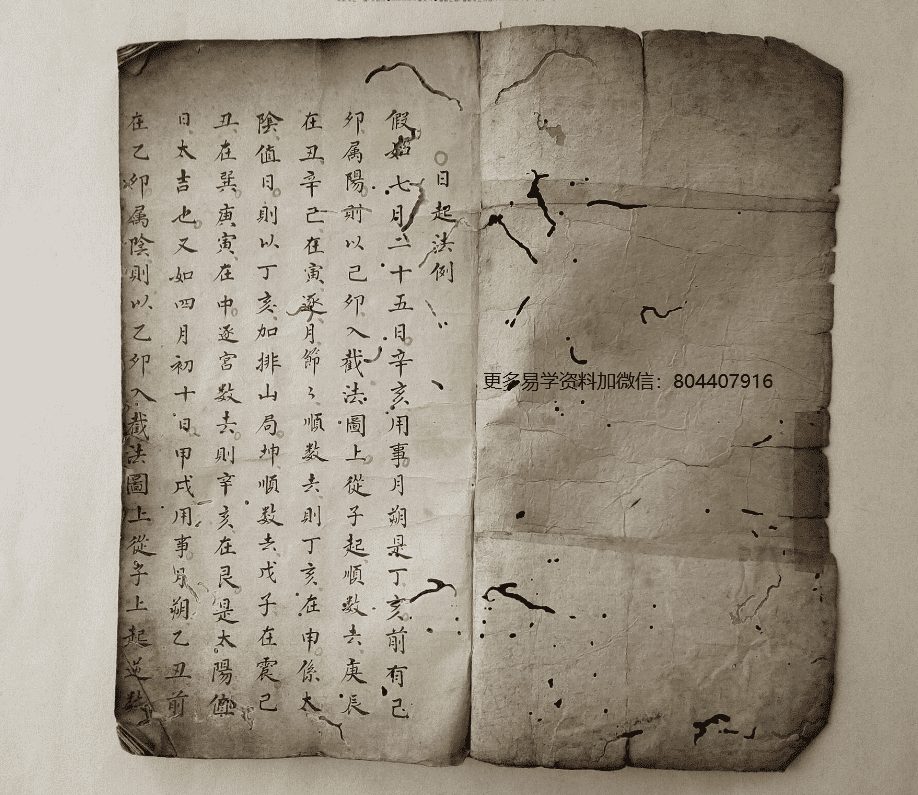 日起法例
假如七月二十五日辛亥用事月朔是丁亥前有己
卯属陽前以己卯入截法圖上從子起順数去庚辰
在丑辛己在寅逐月節々順数去則丁亥在申係太
陰值日則以丁亥加排山局坤順数去戊子在震己
丑在巽庚寅在中逐宮数去則辛亥在艮是太陽值
日太吉也又如四月初十日甲戌用事月朔乙丑前
在乙卯属陰則以乙卯入截法圖上從子上起逆数
更多易学资料加微信：804407916